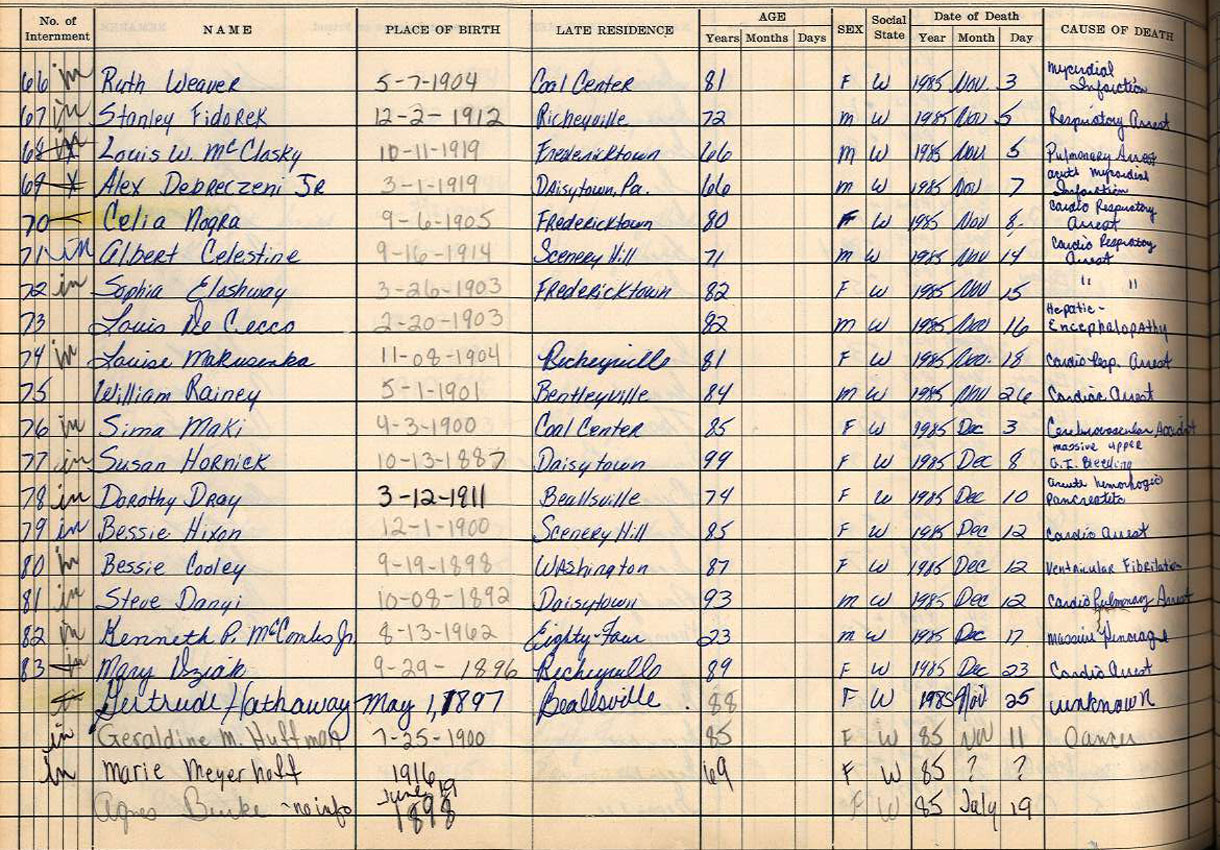 No. of Internment NAME PLACE OF BIRTH LATE RESIDENCE AGE Years Months Days SEX Social State Date of Death Year Month Day CAUSE OF DEATH
66 in Ruth Weaver 5-7-1904 Coal Center 81 F W 1985 Nov. 3 Myocrdial Infarction
67 in Stanley Fidorek 12-2-1912 Richeyville 72 m W 1985 Nov 5 Respiratory Arrest
68 Louis W. McClasky 10-11-1919 Fredericktown 66 m W 1985 Nov 5 Pulmonary Arrest
69 Alex Debreczeni Jr 3-1-1919 Daisytown, Pa. 66 m W 1985 Nov 7 Infarction
70 Celia Nogra 9-6-1905 Fredericktown 80 F W 1985 Nov 8 Cardio Respiratory Arrest
71 in Albert Celestine 9-16-1914 Scenery Hill 71 m W 1985 Nov 14 Cardio Respiratory Arrest
72 in Sophia Elashway 3-26-1903 Fredericktown 82 F W 1985 Nov 15 " "
73 Louis De Cecco 2-20-1903 82 m W 1985 Nov 16 Hepatic-Encephalopathy
74 in Louise Makusenka 11-08-1904 Richeyville 81 F W 1985 Nov. 18 Cardio Resp. Arrest
75 William Rainey 5-1-1901 Bentleyville 84 m W 1985 Nov 26 Cardiac Arrest
76 in Sima Maki 4-3-1900 Coal Center 85 F W 1985 Dec 3 Cerebrovascular Accident
77 in Susan Hornick 10-13-1887 Daisytown 99 F W 1985 Dec 8 massive upper G.I. Bleeding
78 in Dorothy Dray 3-12-1911 Beallsville 74 F W 1985 Dec 10
79 in Bessie Hixon 12-1-1900 Scenery Hill 85 F W 1985 Dec 12 Cardio Arrest
80 in Bessie Cooley 9-19-1898 Washington 87 F W 1985 Dec 12 Ventricular Fibrilation
81 in Steve Danyi 10-08-1892 Daisytown 93 m W 1985 Dec 12 Cardio Pulmonary Arrest
82 in Kenneth P. McCombs Jr. 8-13-1962 Eighty-Four 23 m W 1985 Dec 17 Massive
83 in Mary Dziak 9-29-1896 Richeyville 89 F W 1985 Dec 23 Cardio Arrest
Gertrude Hathaway May 1, 1897 Beallsville. 88 F W 1985 Nov 25 unknown
in Geraldine M. Huffman 7-25-1900 85 F W 85 Nov 11 Cancer
in Marie Meyerhoff 1916 69 F W 85 ? ?
Agnes Burke - no info June 19 1898 F W 85 July 19